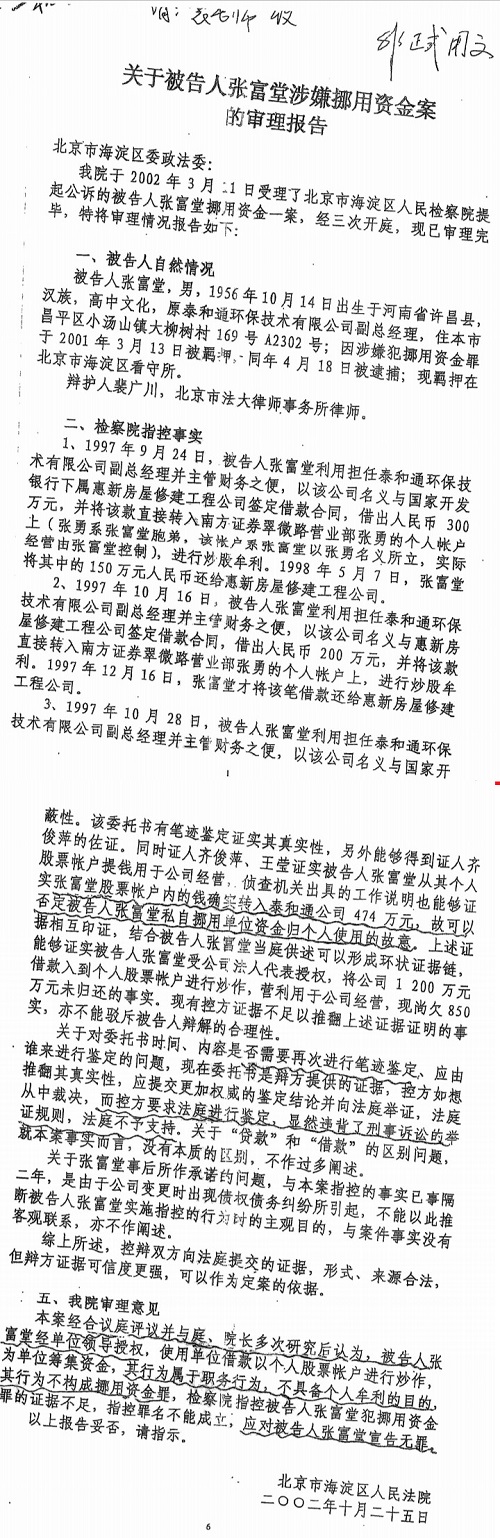 关于被告人张富堂涉嫌挪用资金案
的审理报告
北京市海淀区委政法委：
我院于 2002 年 3 月 11 日受理了北京市海淀区人民检察院提
起公诉的被告人张富堂挪用资金一案，经三次开庭，现已审理完
毕，特将审理情况报告如下：
一、被告人自然情况
被告人张富堂，男，1956 年 10 月 14 日出生于河南省许昌县，
汉族，高中文化，原泰和通环保技术有限公司副总经理，住本市
昌平区小汤山镇大柳树村 169 号 A2302 号；因涉嫌犯挪用资金罪
于 2001 年 3 月 13 日被羁押，同年 4 月 18 日被逮捕；现羁押在
北京市海淀区看守所。
辩护人裴广川，北京市法大律师事务所律师。
二、检察院指控事实
1、1997 年 9 月 24 日，被告人张富堂利用担任泰和通环保技
术有限公司副总经理并主管财务之便，以该公司名义与国家开发
银行下属惠新房屋修建工程公司签定借款合同，借出人民币 300
万元，并将该款直接转入南方证券翠微路营业部张勇的个人帐户
上（张勇系张富堂胞弟，该帐户系张富堂以张勇名义所立，实际
经营由张富堂控制），进行炒股牟利。1998 年 5 月 7 日，张富堂
将其中的 150 万元人民币还给惠新房屋修建工程公司。
2、1997 年 10 月 16 日，被告人张富堂利用担任泰和通环保
技术有限公司副总经理并主管财务之便，以该公司名义与惠新房
屋修建工程公司签定借款合同，借出人民币 200 万元，并将该款
直接转入南方证券翠微路营业部张勇的个人帐户上，进行炒股牟
利。1997 年 12 月 16 日，张富堂才将该笔借款还给惠新房屋修建
工程公司。
3、1997 年 10 月 28 日，被告人张富堂利用担任泰和通环保
技术有限公司副总经理并主管财务之便，以该公司名义与国家开
1
蔽性。该委托书有笔迹鉴定证实其真实性，另外能够得到证人齐
俊萍的佐证。同时证人齐俊萍、王莹证实被告人张富堂从其个人
股票帐户提钱用于公司经营，侦查机关出具的工作说明也能够证
实张富堂股票帐户内的钱确实转入泰和通公司 474 万元，故可以
否定被告人张富堂私自挪用单位资金归个人使用的故意。上述证
据相互印证，结合被告人张富堂当庭供述可以形成环状证据链，
能够证实被告人张富堂受公司法人代表授权，将公司 1 200 万元
借款入到个人股票帐户进行炒作，营利用于公司经营，现尚欠 850
万元未归还的事实。现有控方证据不足以推翻上述证据证明的事
实，亦不能驳斥被告人辩解的合理性。
关于对委托书时间、内容是否需要再次进行笔迹鉴定、应由
谁来进行鉴定的问题，现在委托书是辩方提供的证据，控方如想
推翻其真实性，应提交更加权威的鉴定结论并向法庭举证，法庭
从中裁决，而控方要求法庭进行鉴定，显然违背了刑事诉讼的举
证规则，法庭不予支持。关于“贷款”和“借款”的区别问题，
就本案事实而言，没有本质的区别，不作过多阐述。
关于张富堂事后所作承诺的问题，与本案指控的事实已事隔
二年，是由于公司变更时出现债权债务纠纷所引起，不能以此推
断被告人张富堂实施指控的行为时的主观目的，与案件事实没有
客观联系，亦不作阐述。
综上所述，控辩双方向法庭提交的证据，形式、来源合法，
但辩方证据可信度更强，可以作为定案的依据。
五、我院审理意见
本案经合议庭评议并与庭、院长多次研究后认为，被告人张
富堂经单位领导授权，使用单位借款以个人股票帐户进行炒作，
为单位筹集资金，其行为属于职务行为，不具备个人牟利的目的，
其行为不构成挪用资金罪，检察院指控被告人张富堂犯挪用资金
罪的证据不足，指控罪名不能成立，应对被告人张富堂宣告无罪。
以上报告妥否，请指示。
北京市海淀区人民法院
二〇〇二年十月二十五日
6